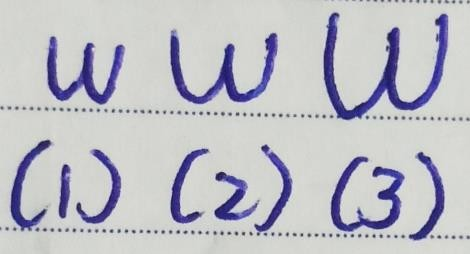 w w W
(1) (2) (3)